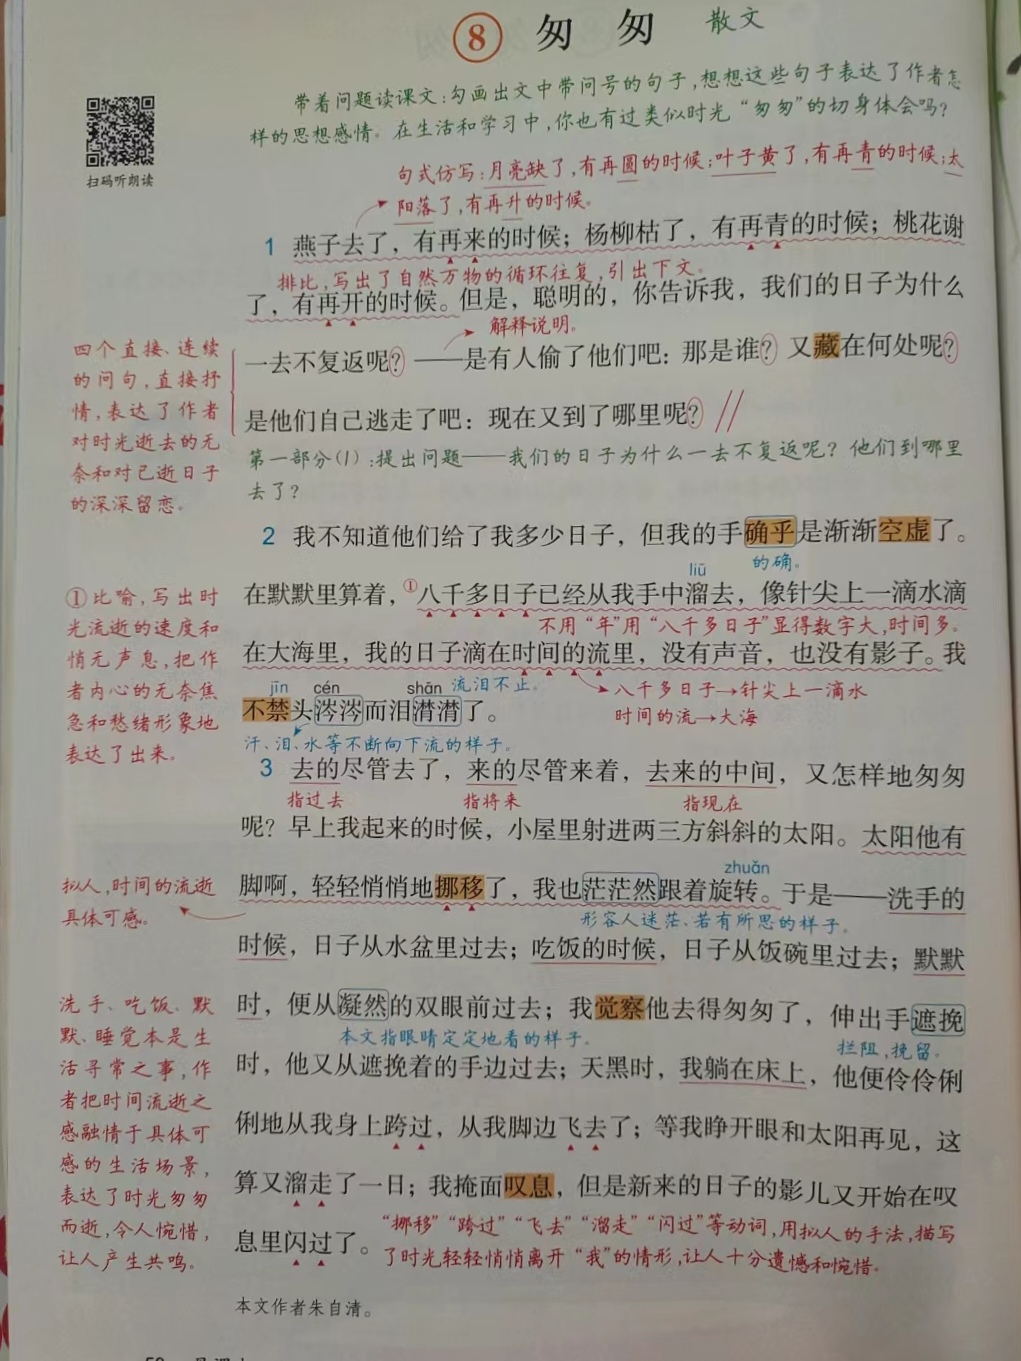 8 匆 匆 散文
带着问题读课文:勾画出文中带问号的句子,想想这些句子表达了作者怎
样的思想感情。在生活和学习中,你也有过类似时光“匆匆”的切身体会吗?
扫码听朗读
句式仿写:月亮缺了,有再圆的时候;叶子黄了,有再青的时候;太
阳落了,有再升的时候。
1 燕子去了，有再来的时候；杨柳枯了，有再青的时候；桃花谢
排比,写出了自然万物的循环往复,引出下文。
了，有再开的时候。但是，聪明的，你告诉我，我们的日子为什么
解释说明。
一去不复返呢？——是有人偷了他们吧：那是谁？又藏在何处呢？
是他们自己逃走了吧：现在又到了哪里呢？
四个直接、连续
的问句,直接抒
情,表达了作者
对时光逝去的无
奈和对已逝日子
的深深留恋。
第一部分(1):提出问题——我们的日子为什么一去不复返呢?他们到哪里
去了?
2 我不知道他们给了我多少日子，但我的手确乎是渐渐空虚了。
的确。
liū
在默默里算着，①八千多日子已经从我手中溜去，像针尖上一滴水滴
不用“年”用“八千多日子”显得数字大,时间多。
在大海里，我的日子滴在时间的流里，没有声音，也没有影子。我
jīn cén shān 流泪不止。
八千多日子→针尖上一滴水
不禁头涔涔而泪潸潸了。
时间的流→大海
汗、泪、水等不断向下流的样子。
①比喻,写出时
光流逝的速度和
悄无声息,把作
者内心的无奈焦
急和愁绪形象地
表达了出来。
3 去的尽管去了，来的尽管来着，去来的中间，又怎样地匆匆
指过去 指将来 指现在
呢？早上我起来的时候，小屋里射进两三方斜斜的太阳。太阳他有
zhuǎn
脚啊，轻轻悄悄地挪移了，我也茫茫然跟着旋转。于是——洗手的
形容人迷茫、若有所思的样子。
拟人,时间的流逝
具体可感。
时候，日子从水盆里过去；吃饭的时候，日子从饭碗里过去；默默
时，便从凝然的双眼前过去；我觉察他去得匆匆了，伸出手遮挽
本文指眼睛定定地看的样子。
拦阻,挽留。
时，他又从遮挽着的手边过去；天黑时，我躺在床上，他便伶伶俐
俐地从我身上跨过，从我脚边飞去了；等我睁开眼和太阳再见，这
算又溜走了一日；我掩面叹息，但是新来的日子的影儿又开始在叹
息里闪过了。
“挪移”“跨过”“飞去”“溜走”“闪过”等动词,用拟人的手法,描写
了时光轻轻悄悄离开“我”的情形,让人十分遗憾和惋惜。
洗手、吃饭、默
默、睡觉本是生
活寻常之事,作
者把时间流逝之
感融情于具体可
感的生活场景,
表达了时光匆匆
而逝,令人惋惜,
让人产生共鸣。
本文作者朱自清。